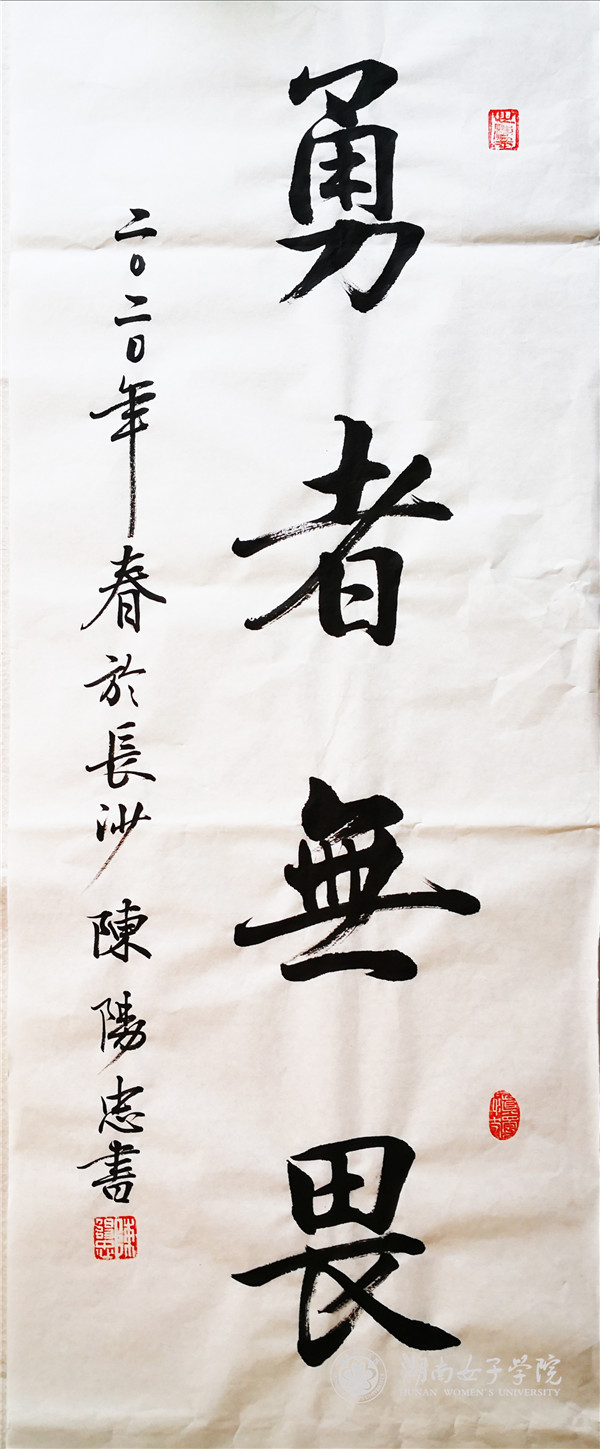 勇者無畏
二〇二〇年春於長沙 陳陽忠書
湖南女子学院
HUNAN WOMEN'S UNIVERSITY